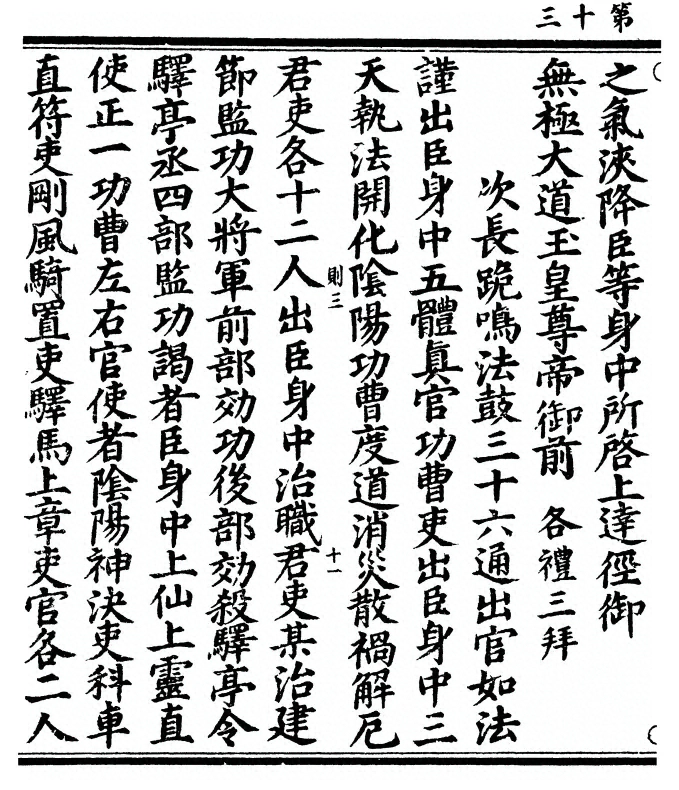 第十三
之氣浹降臣等身中所啓上達徑御
無極大道玉皇尊帝御前 各禮三拜
次長跪鳴法鼓三十六通出官如法
謹出臣身中五體眞官功曹吏出臣身中三
天執法開化陰陽功曹度道消災散禍解厄
則三
十一
君吏各十二人出臣身中治職君吏某治建
節監功大將軍前部効功後部効殺驛亭令
驛亭丞四部監功謁者臣身中上仙上靈直
使正一功曹左右官使者陰陽神決吏科車
直符吏剛風騎置吏驛馬上章吏官各二人